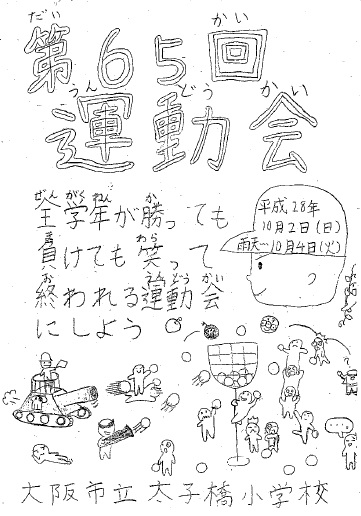 だい かい
第65回
うんどうかい
運動会
ぜんがくねん か
全学年が勝っても
ま わら
負けても笑って
お うんどうかい
終われる運動会
にしよう。
平成28年
10月2日(日)
雨天〜10月4日(火)
大阪市立太子橋小学校